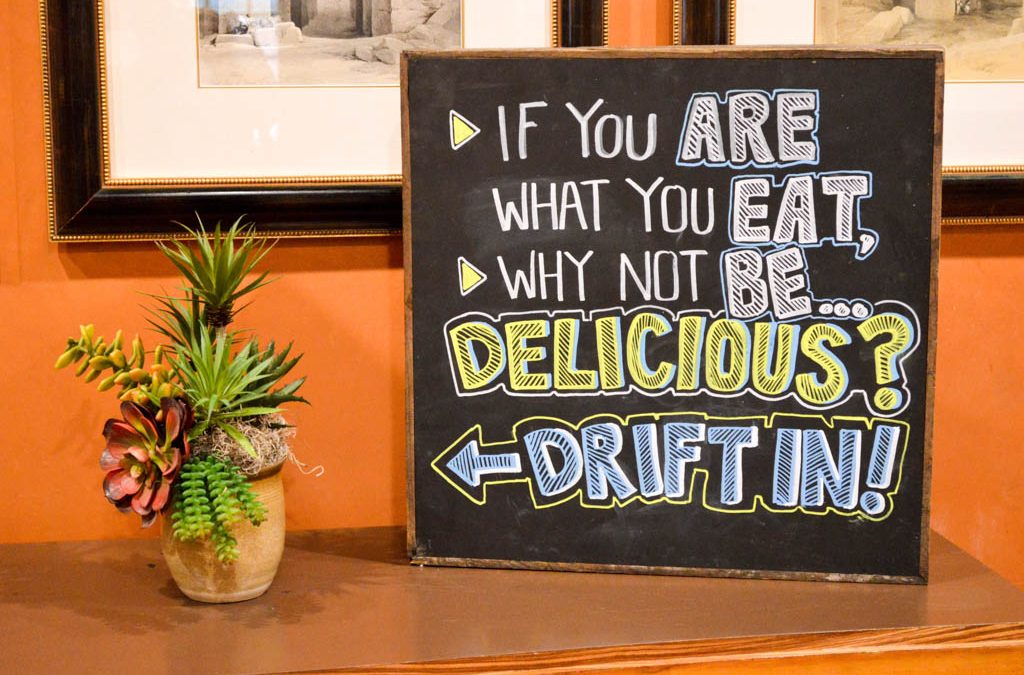 IF YOU ARE
WHAT YOU EAT,
WHY NOT BE...
DELICIOUS?
DRIFT IN!